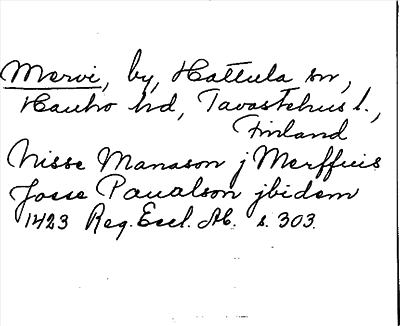 Mervi, by, Hattula sn,
Hauho hd, Tavastehus l.,
Finland
Nisse Manason j Merffuis
Josse Paualson jbidem
1423 Reg. Eccl. Ab. s. 303.